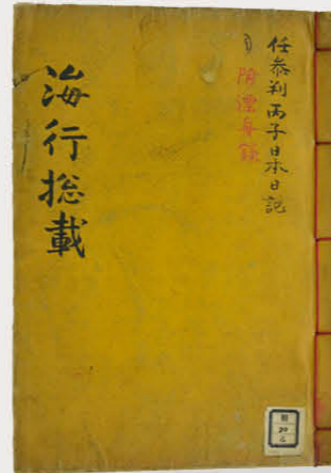 任叅判丙子日本日記
附漂舟錄
海行摠載